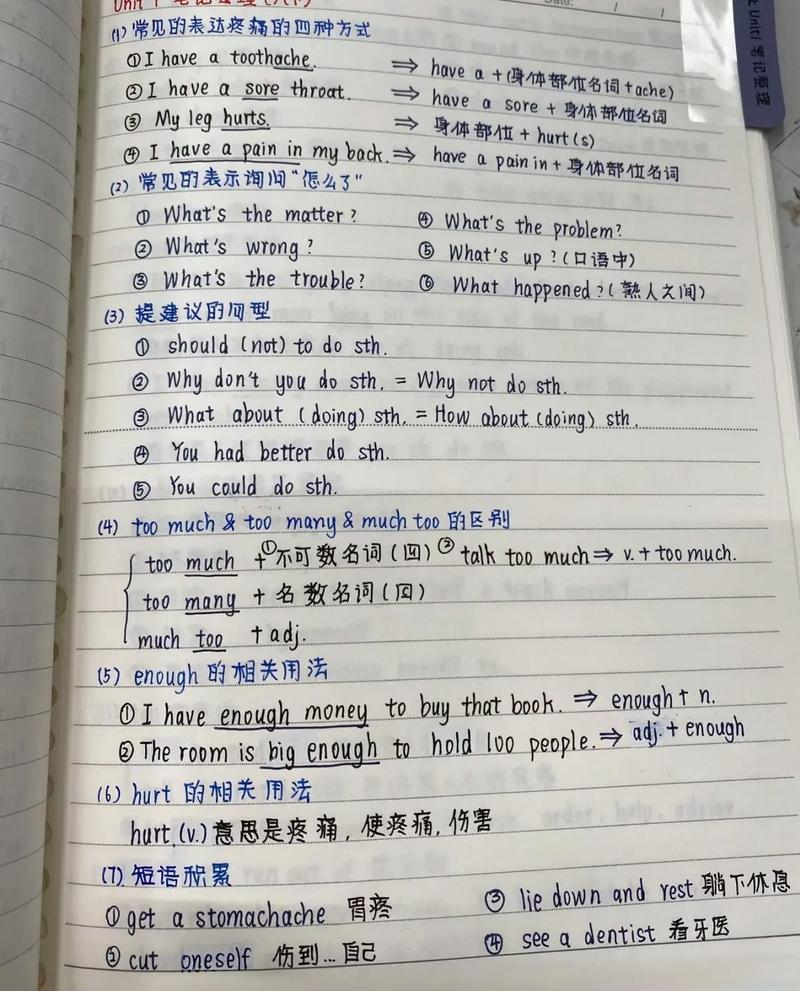 Unit 1 笔记整理(八下)
Date: / /
Unit1 笔记整理
(1) 常见的表达疼痛的四种方式
①I have a toothache. ⇒ have a +(身体部位名词+ache)
②I have a sore throat. ⇒ have a sore + 身体部位名词
③ My leg hurts. ⇒ 身体部位 + hurt(s)
④ I have a pain in my back. ⇒ have a pain in + 身体部位名词
(2) 常见的表示询问“怎么了”
① What's the matter? ④ What's the problem?
② What's wrong? ⑤ What's up?(口语中)
③ What's the trouble? ⑥ What happened?(熟人之间)
(3) 提建议的句型
① should (not) to do sth.
② Why don't you do sth. = Why not do sth.
③ What about (doing) sth. = How about (doing) sth.
④ You had better do sth.
⑤ You could do sth.
(4) too much & too many & much too 的区别
too much +①不可数名词(四) ② talk too much ⇒ v. + too much.
too many + 名数名词(四)
much too + adj.
(5) enough 的相关用法
①I have enough money to buy that book. ⇒ enough + n.
②The room is big enough to hold 100 people. ⇒ adj. + enough
(6) hurt 的相关用法
hurt (v.) 意思是疼痛, 使疼痛, 伤害
(7) 短语积累
①get a stomachache 胃疼 ③ lie down and rest 躺下休息
② cut oneself 伤到...自己 ④ see a dentist 看牙医